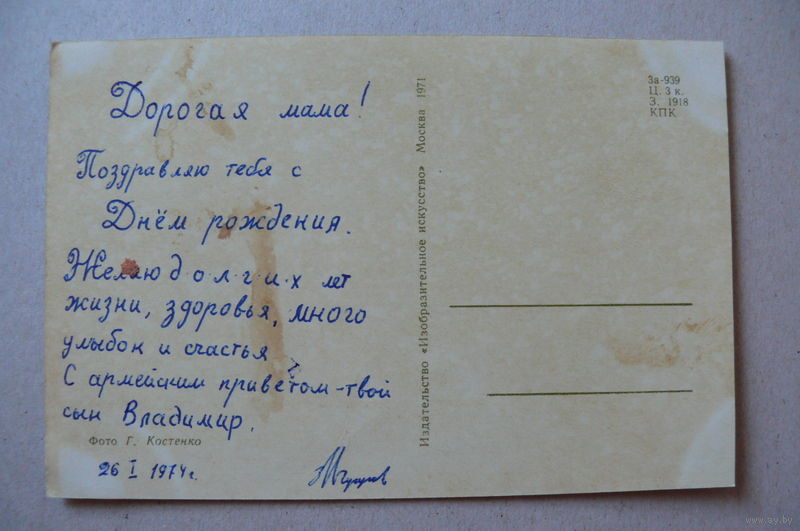 Дорогая мама!
Поздравляю тебя с
Днём рождения.
Желаю д·о·л·г·и·х лет
жизни, здоровья, много
улыбок и счастья
С армейским приветом-твой
сын Владимир.
Фото Г. Костенко
26 I 1974г.
Издательство «Изобразительное искусство» Москва 1971
За-939
Ц. 3 к.
З. 1918
КПК
www.ay.by